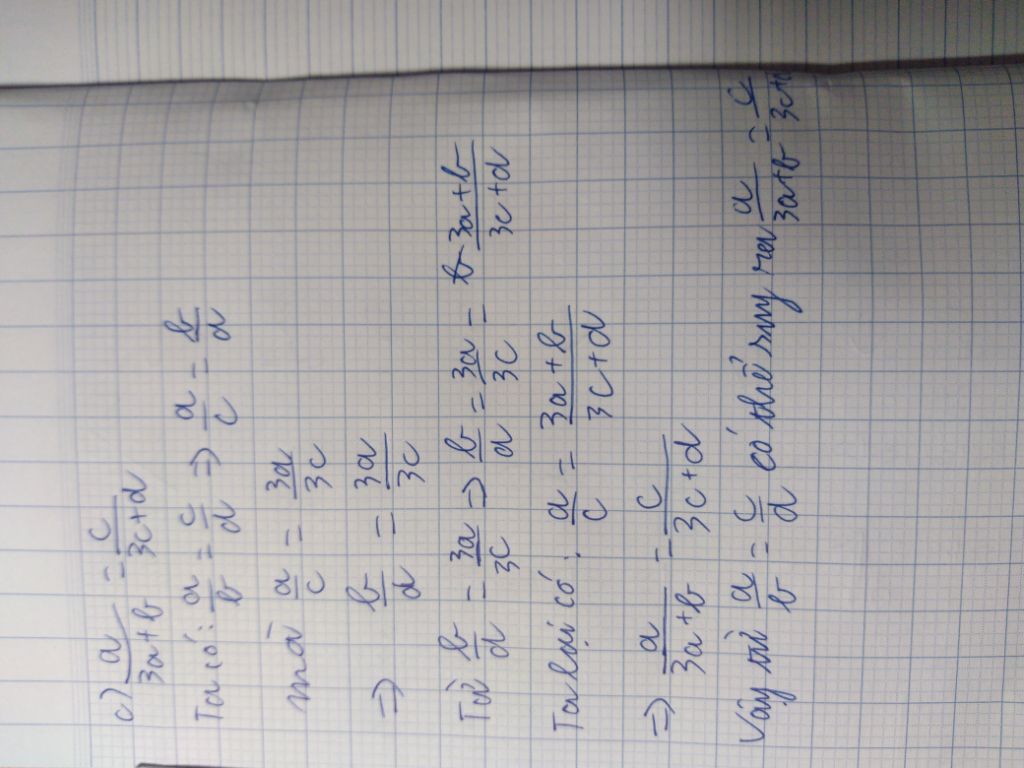 c) a/(3a+b) = c/(3c+d)
Ta có: a/b = c/d => a/c = b/d
mà a/c = 3a/3c
=> b/d = 3a/3c
Từ b/d = 3a/3c => b/d = 3a/3c = (3a+b)/(3c+d)
Ta lại có: a/c = (3a+b)/(3c+d)
=> a/(3a+b) = c/(3c+d)
Vậy từ a/b = c/d có thể suy ra a/(3a+b) = c/(3c+d